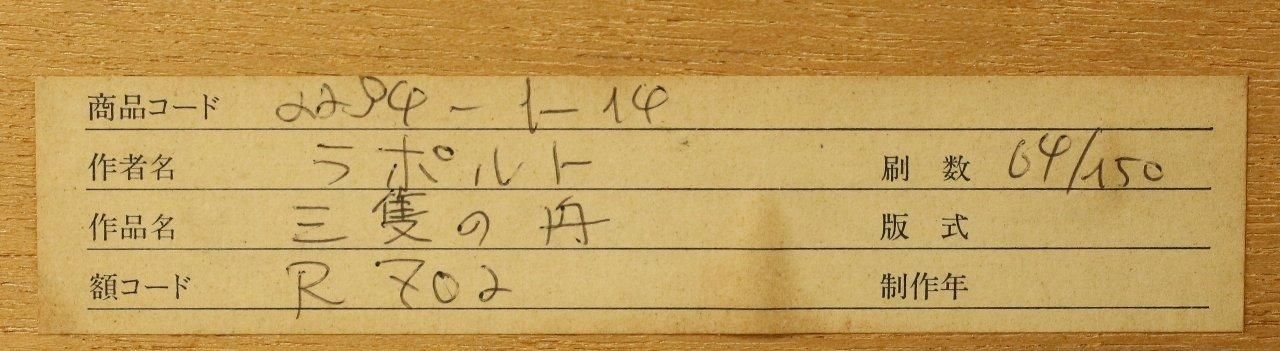 商品コード 2294-1-14
作者名 ラポルト 刷数 64/150
作品名 三隻の舟 版式
額コード R 702 制作年